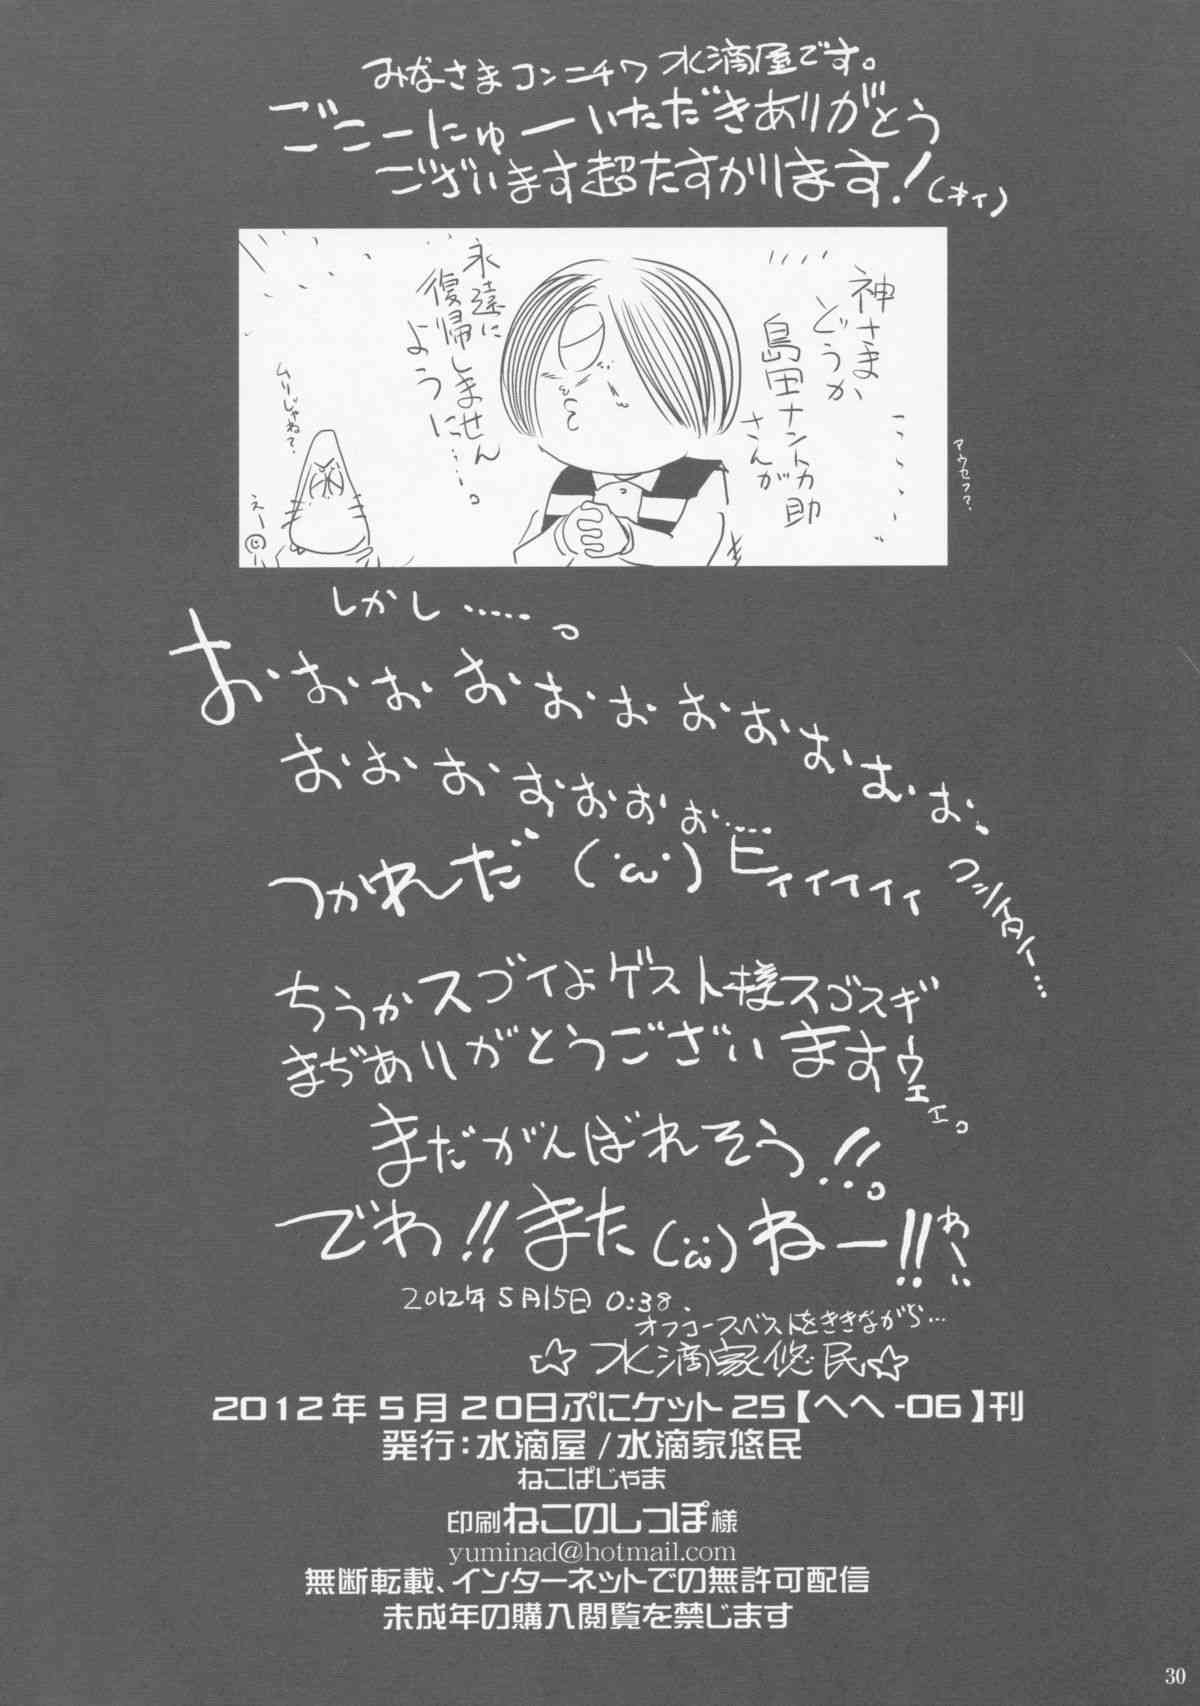 みなさまコンニチワ 水滴屋です。
ごこーにゅーいただきありがとう
ございます超たすかります!(オイ)
神さま
どうか
島田ナントカ助
さんが
永遠に
復帰しません
ように……。
ムリじゃね?
えー
アウセフ?
しかし……。
おぉぉおぉぉぉぉぉぉぉ、
おぉぉぉぉぉぉ……
コシイタイ…
つかれだ(・ω・)ビィィィィィ
ちうかスゴイよゲスト様スゴスギ
まぢありがとうございますウェェ。
まだがんばれそう!!。
でわ!!また(・ω・)ねー!!
わーい
2012年5月15日 0:38.
オフコースベストをききながら…
☆水滴家悠民☆
2012年5月20日ぷにケット25【へへ-06】刊
発行:水滴屋/水滴家悠民
ねこぱじゃま
印刷ねこのしっぽ様
yuminad@hotmail.com
無断転載、インターネットでの無許可配信
未成年の購入閲覧を禁じます
30